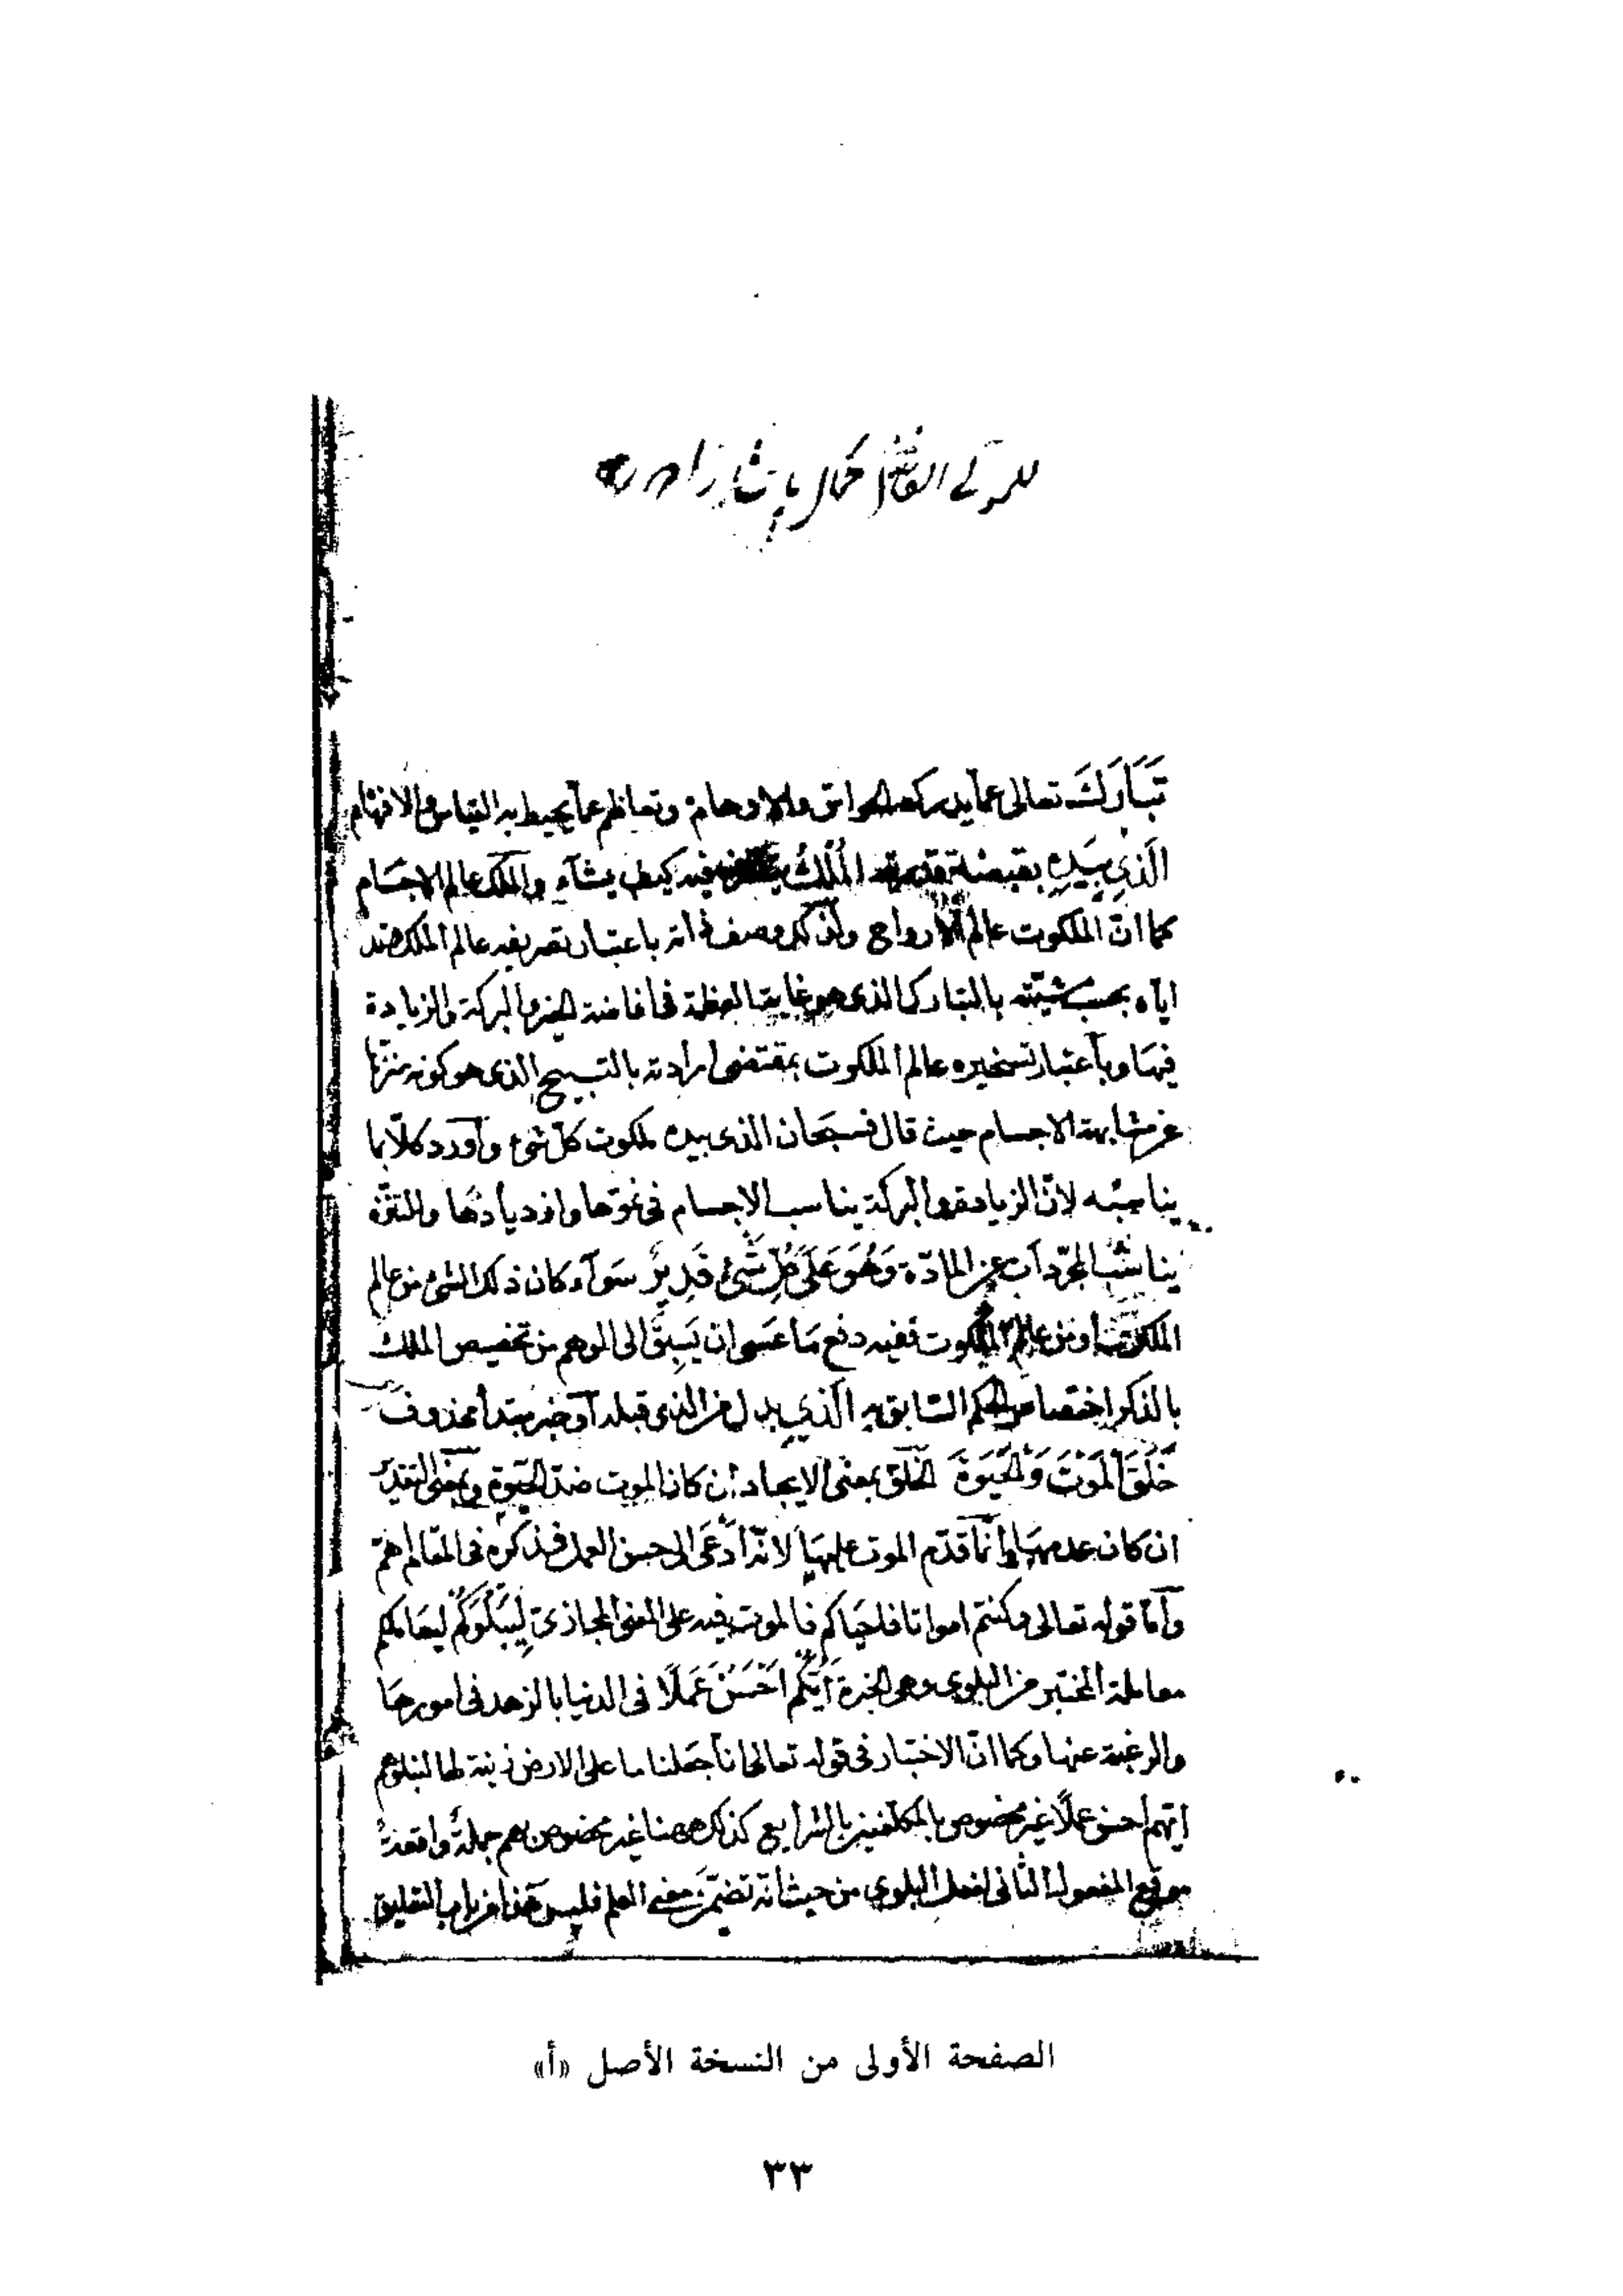 للمولى الفاضل كمال باشا زاده
تَبَارَكَ تعالى عما يدركه الحواس والاوهام وتعاظم عما يحيط به القياس والافهام
الَّذِي بِيَدِهِ بقبضة قدرته الْمُلْكُ فيه كيف يشاء والملك عالم الاجسام
كما انّ الملكوت عالم الارواح ولذلك وصف ذاته باعتبار تصريفه عالم الملك
اياه بحسب مشيّته بالتبارك الذى هو غاية العظمة فى افاضة الخير والبركة والزيادة
فيها وباعتبار تسخيره عالم الملكوت بمقتضى ارادته بالتسبيح الذى هو كونه منزّها
عن مشابهة الاجسام حيث قال فسبحان الذى بيده ملكوت كلّ شىء واورد كلّا بما
يناسبه لانّ الزيادة والبركة يناسب الاجسام فى نموّها وازديادها والتنزّه
يناسب المجرّدات عن المادّة وَهُوَ عَلَى كُلِّ شَىْءٍ قَدِيرٌ سوآء كان ذلك الشىء من عالم
الملك او من عالم الملكوت ففيه دفع ما عسى ان يسبق الى الوهم من تخصيص الملك
بالذكر اختصاص الحكم السابق به الَّذِي بدل من الذى قبله او خبر مبتدأ محذوف
خَلَقَ الْمَوْتَ وَالْحَيٰوةَ الخلق بمعنى الايجاد ان كان الموت ضدّ الحيوة وبمعنى التقدير
ان كان عدمها وانّما قدّم الموت عليها لانّه ادعى الى حسن العمل فذكره فى المقام اهمّ
وامّا قوله تعالى وكنتم امواتا فاحياكم فالموت فيه على المعنى المجازىّ لِيَبْلُوَكُمْ ليعاملكم
معاملة المختبر من البلوى وهى الخبرة أَيُّكُمْ أَحْسَنُ عَمَلًا فى الدنيا بالزهد فى امورها
والرغبة عنها وكما انّ الاختبار فى قوله تعالى انا جعلنا ما على الارض زينة لها لنبلوهم
ايّهم احسن عملًا غير مخصوص بالمكلّفين بالشرايع كذلك ههنا غير مخصوص بهم جملة واقعة
موقع المفعول الثانى لفعل البلوى من حيث انّه تضمّن معنى العلم فليس هذا من باب التعليق
الصفحة الأولى من النسخة الأصل «أ»
٣٣